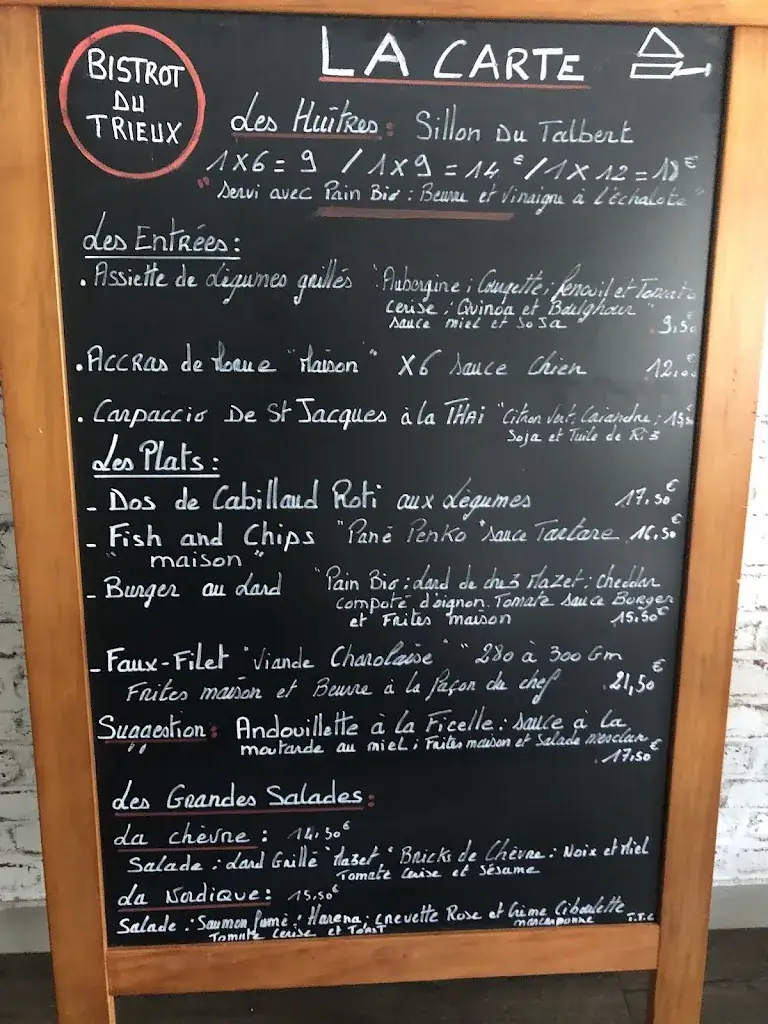 BISTROT
DU
TRIEUX
LA CARTE
Les Huîtres : Sillon Du Talbert
1X6 = 9 / 1X9 = 14 € / 1X12 = 18 €
" Servi avec Pain Bio : Beurre et Vinaigre à l'échalote "
Les Entrées :
. Assiette de légumes grillés "Aubergine ; Courgette ; fenouil et Tomate
cerise ; Quinoa et Boulghour "
sauce miel et Soja 9,50
. ACCRAS de Morue "Maison" X6 Sauce Chien 12,00
. Carpaccio De St Jacques à la THAI "Citron Vert, Coriandre ; 15,50
Soja et Tuile de Riz
Les Plats :
- Dos de Cabillaud Roti aux légumes 17.50€
- Fish and Chips "Pané Penko "sauce Tartare 16,50€
" maison "
- Burger au Lard "Pain Bio ; Lard de chez Mazet ; Cheddar
compoté d'oignon. Tomate sauce Burger
et Frites maison 15.50€
- Faux-Filet "Viande Charolaise" " 280 à 300 Gm
Frites maison et Beurre à la façon du chef 21,50€
Suggestion : Andouillette à la Ficelle : sauce à la
moutarde au miel ; Frites maison et Salade mesclun
17.50€
Les Grandes Salades :
La chèvre : 14,50€
Salade ; Lard Grillé "Mazet" Bricks de Chèvre ; Noix et Miel
Tomate cerise et Sésame
La Nordique : 15.50€
Salade : Saumon fumé ; Harena ; crevette Rose et Crème Ciboulette
mascarponne T.T.C
Tomate cerise et Toast